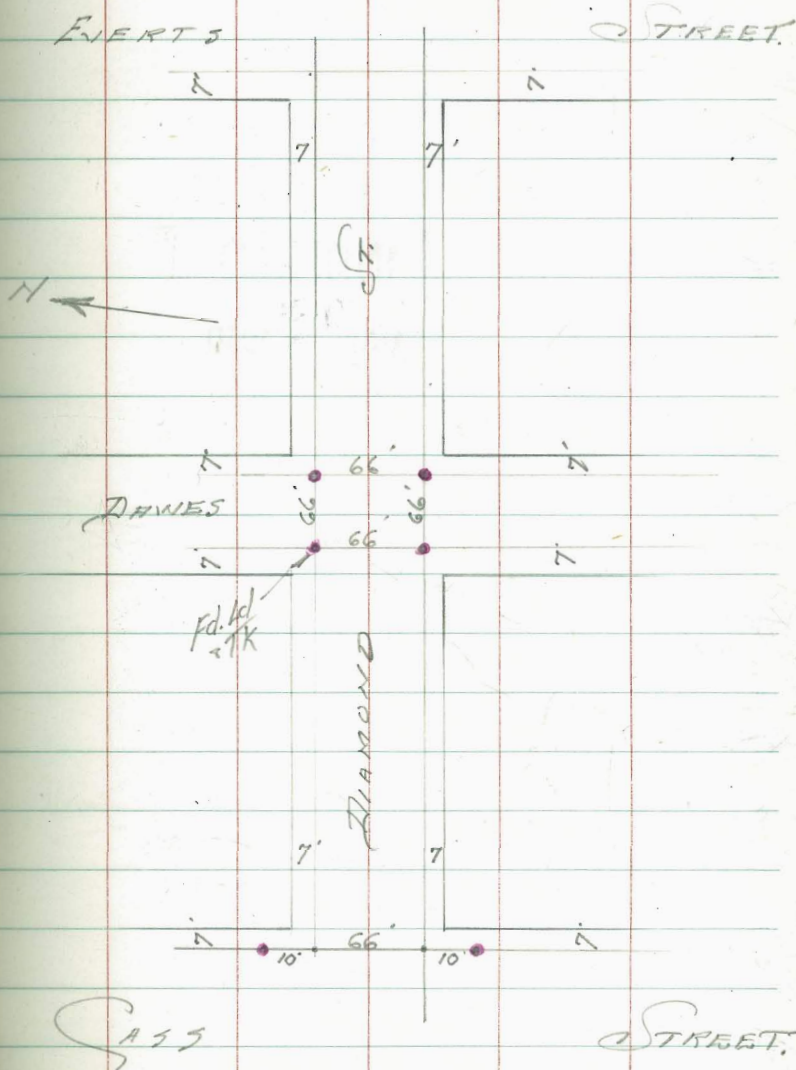 EVERTS STREET.
7' 7'
7 7'
ST.
N
7' 66' 7'
DAWES 66' 66'
7' 66' 7'
Fd. Ld
& TK
DIAMOND
7' 7
7' 66' 7'
10' 10'
CASS STREET.